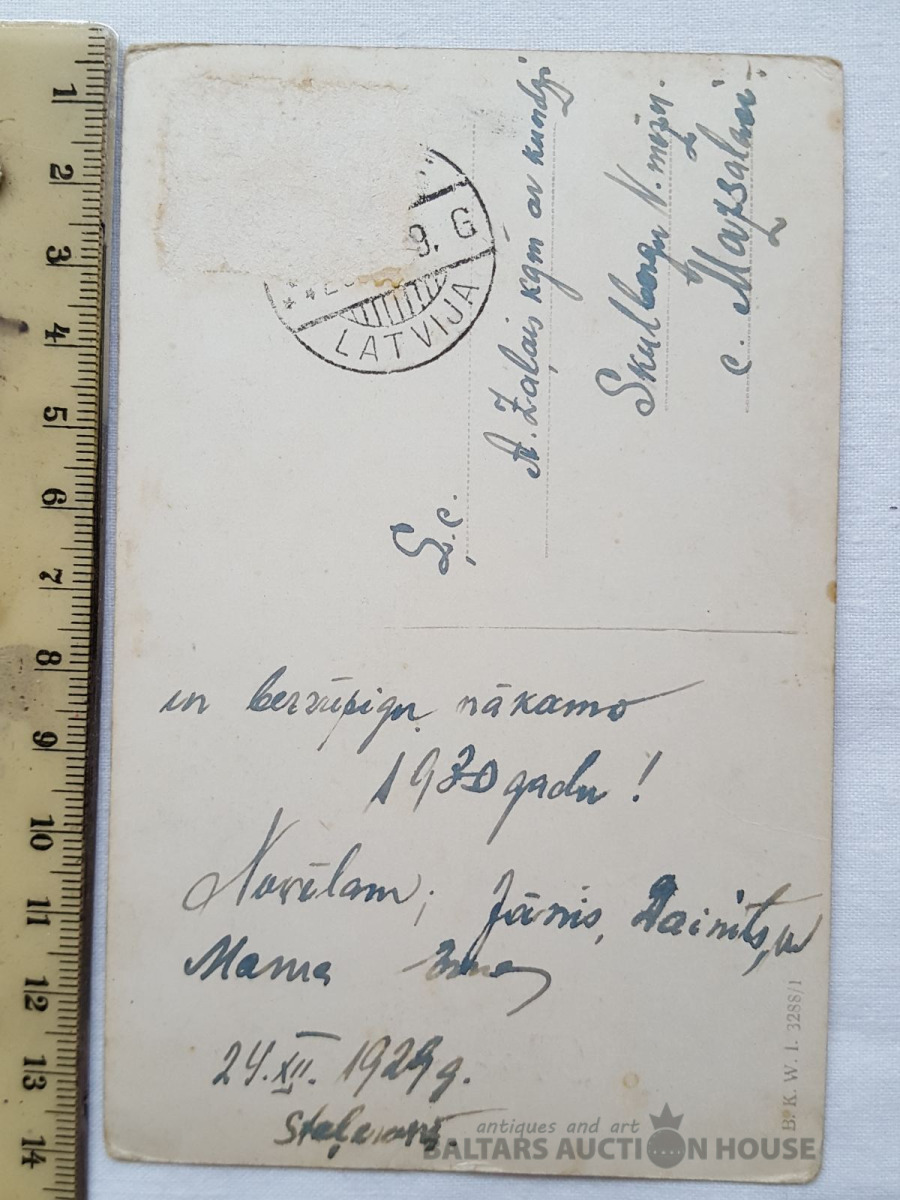 LATVIJA
9. G
L.c.
A. Zaļais kgm ar kundzi
N. mzņ.
c. Mazsalacā.
un bezrūpīgu nākamo
1930 gadu!
Novēlam; Jānis, Dainis, un
Mama
24. XII. 1929 g.
B. K. W. I. 3288/1
antiques and art
BALTARS AUCTION HOUSE
1
2
3
4
5
6
7
8
9
10
11
12
13
14